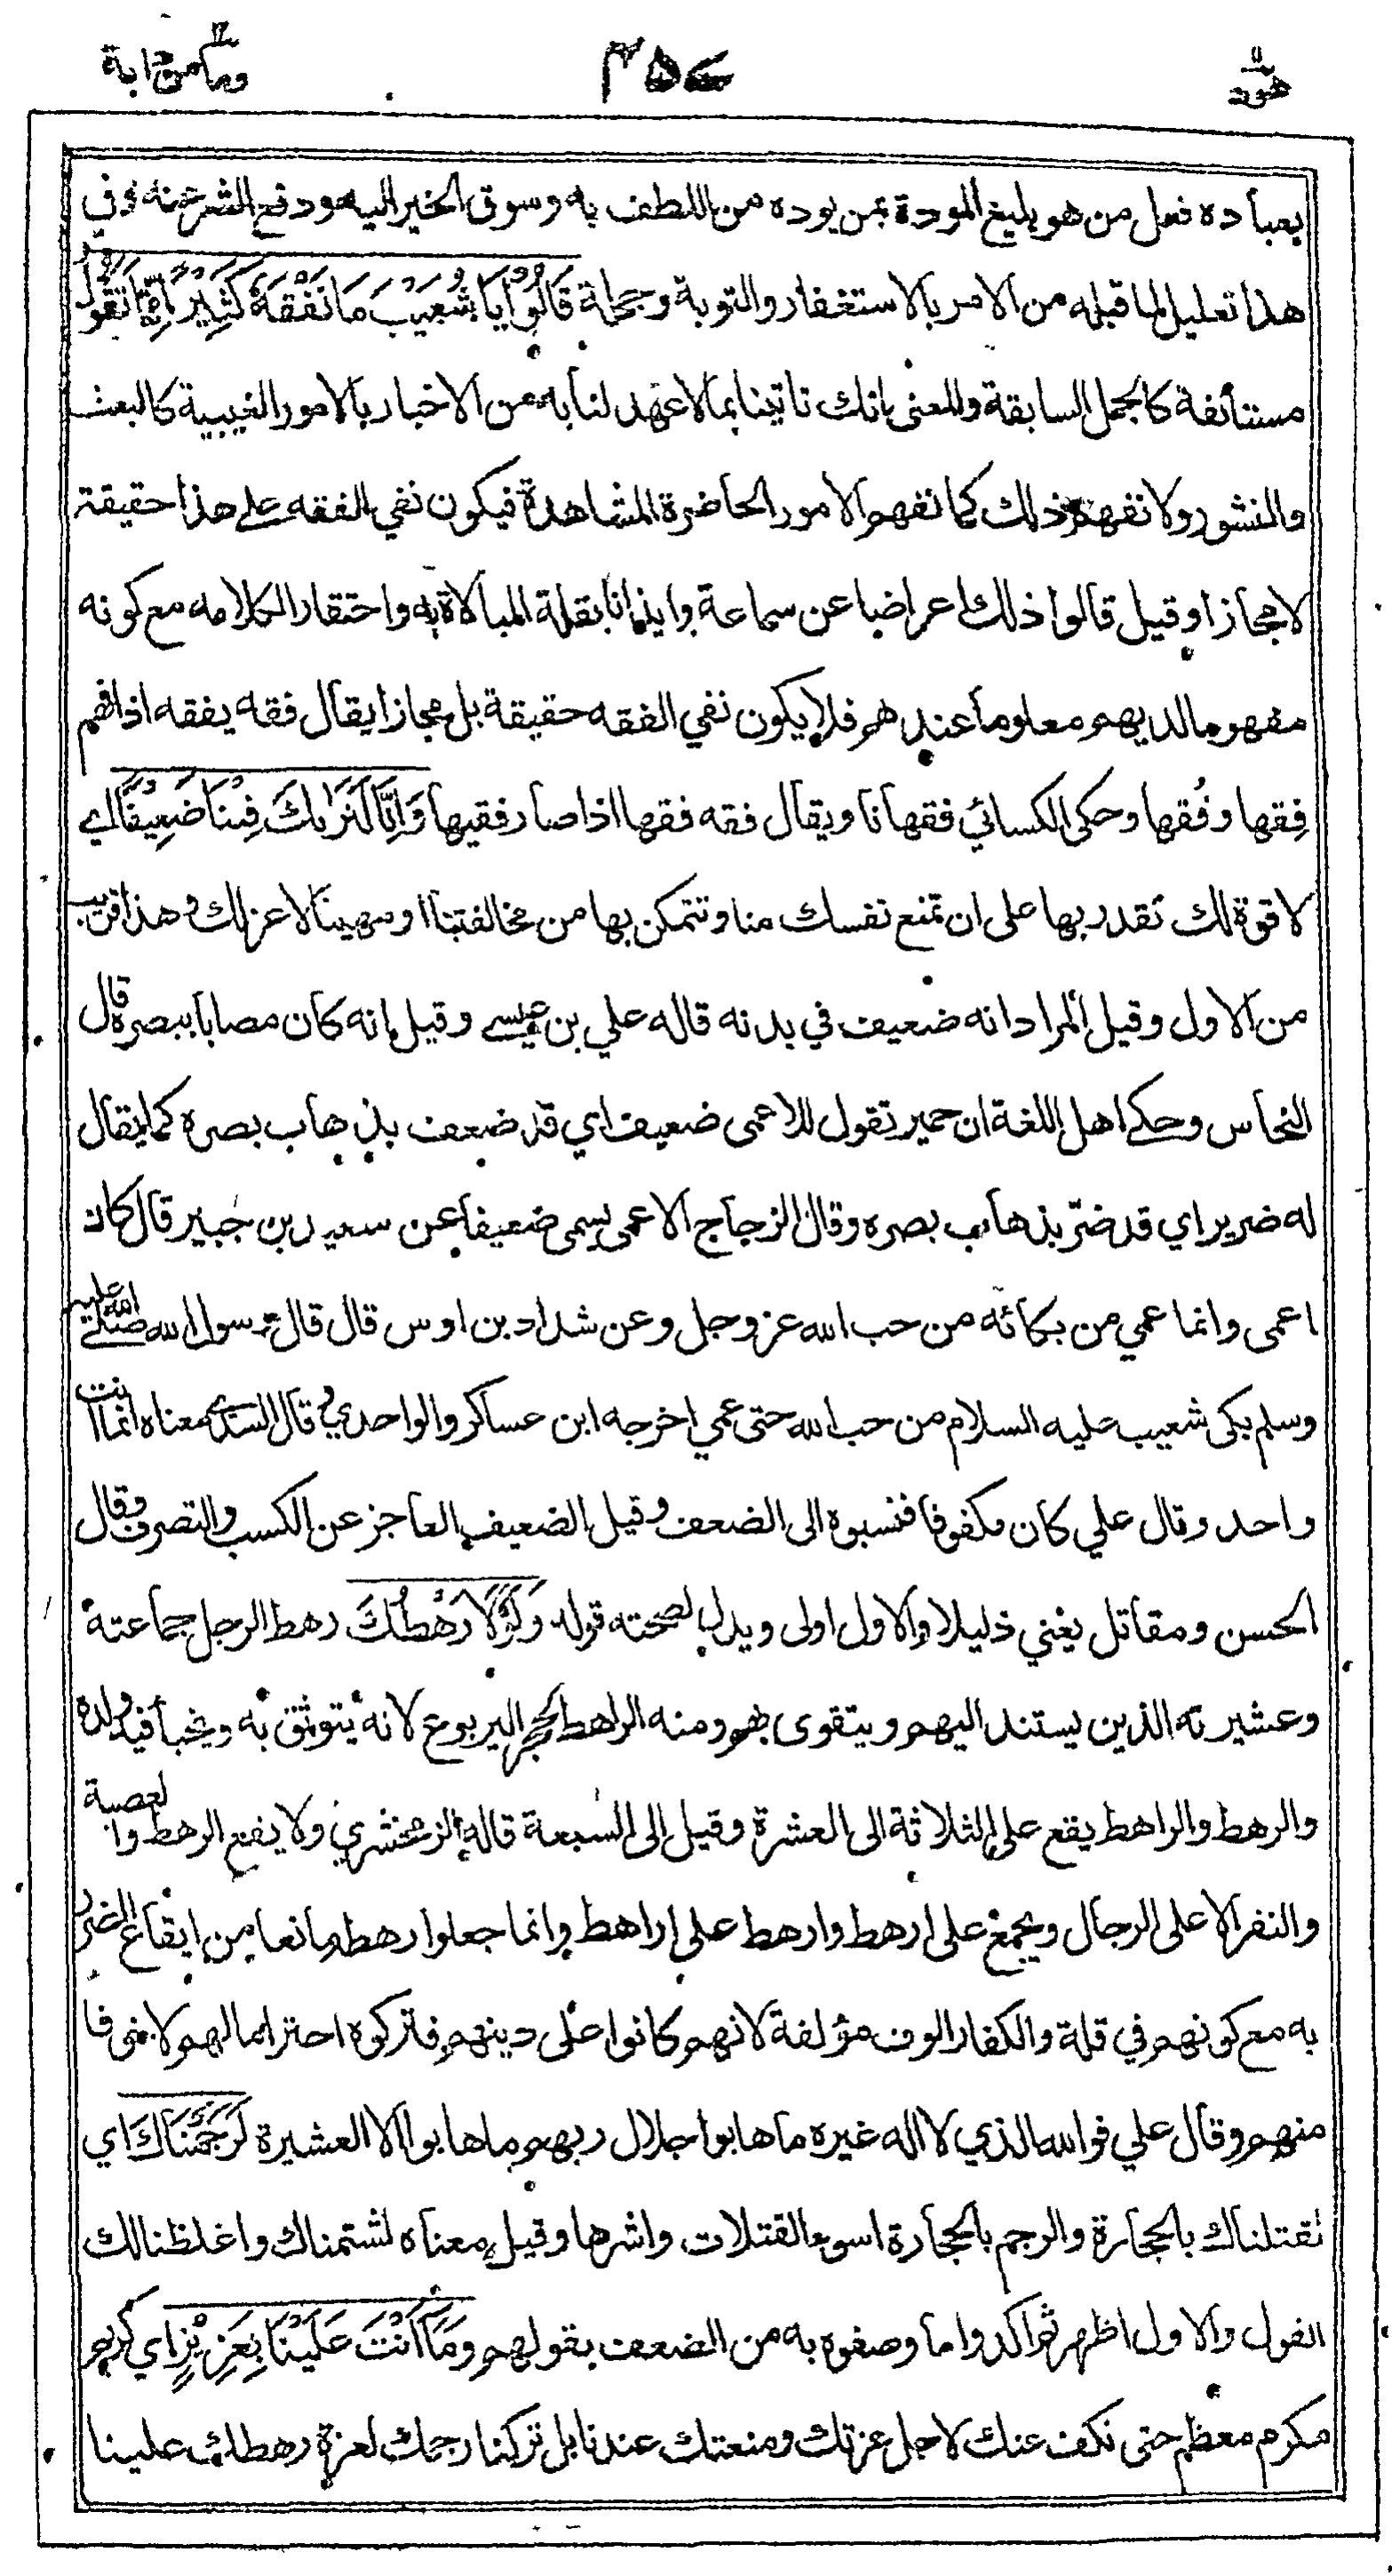 هود ١١ ٤٥٧ وما من دابة ١٢
بعباده فعل من هو بليغ المودة بمن يوده من اللطف به وسوق الخير اليه ودفع الشر عنه وفي
هذا تعليل لما قبله من الامر بالاستغفار والتوبة وجملة قَالُوْا يَا شُعَيْبُ مَا نَفْقَهُ كَثِيْرًا مِّمَّا تَقُوْلُ
مستأنفة كالجمل السابقة والمعنى انك تاتينا بما لا عهد لنا به من الاخبار بالامور الغيبية كالبعث
والنشور ولا نفهم ذلك كما نفهم الامور الحاضرة المشاهدة فيكون نفي الفقه على هذا حقيقة
لا مجازا وقيل قالوا ذلك اعراضا عن سماعه وايذانا بقلة المبالاة به واحتقارا لكلامه مع كونه
مفهوما لديهم معلوما عندهم فلا يكون نفي الفقه حقيقة بل مجازا يقال فقه يفقه اذا فهم
فِقها وفُقها وحكى الكسائي فقهانا ويقال فقه فقها اذا صار فقيها وَاِنَّا لَنَرٰىكَ فِيْنَا ضَعِيْفًا اي
لا قوة لك تقدر بها على ان تمنع نفسك منا وتتمكن بها من مخالفتنا او مهينا لا عز لك وهذا قريب
من الاول وقيل المراد انه ضعيف في بدنه قاله علي بن عيسى وقيل انه كان مصابا ببصره قال
النحاس وحكى اهل اللغة ان حمير تقول للاعمى ضعيف اي قد ضعف بذهاب بصره كما يقال
له ضرير اي قد ضرّ بذهاب بصره وقال الزجاج الاعمى يسمى ضعيفا عن سعيد بن جبير قال كان
اعمى وانما عمي من بكائه من حب الله عز وجل وعن شداد بن اوس قال قال رسول الله صلى الله عليه
وسلم بكى شعيب عليه السلام من حب الله حتى عمي اخرجه ابن عساكر والواحدي وقال السدي معناه انما انت
واحد وقال علي كان مكفوفا فنسبوه الى الضعف وقيل الضعيف العاجز عن الكسب والتصرف وقال
الحسن ومقاتل يعني ذليلا والاول اولى ويدل لصحته قوله وَلَوْلَا رَهْطُكَ رهط الرجل جماعته
وعشيرته الذين يستند اليهم ويتقوى بهم ومنه الراهط لجحر اليربوع لانه يتوثق به ويخبأ فيه ولده
والرهط والراهط يقع على الثلاثة الى العشرة وقيل الى السبعة قاله الزمخشري ولا يقع الرهط والعصبة
والنفر الا على الرجال ويجمع على ارهط وارهط على اراهط وانما جعلوا رهطه مانعا من ايقاع الضرر
به مع كونهم في قلة والكفار الوف مؤلفة لانهم كانوا على دينهم فتركوه احتراما لهم لا خوفا
منهم وقال علي فوالله الذي لا اله غيره ما هابوا جلال ربهم ما هابوا الا العشيرة لَرَجَمْنَاكَ اي
لقتلناك بالحجارة والرجم بالحجارة اسوء القتلات واشرها وقيل معناه لشتمناك واغلظنا لك
القول والاول اظهر ثم اكدوا ما وصفوه به من الضعف بقولهم وَمَآ اَنْتَ عَلَيْنَا بِعَزِيْزٍ اي كريم
مكرم معظم حتى نكف عنك لاجل عزتك ومنعتك عندنا بل تركنا رجمك لعزة رهطك علينا